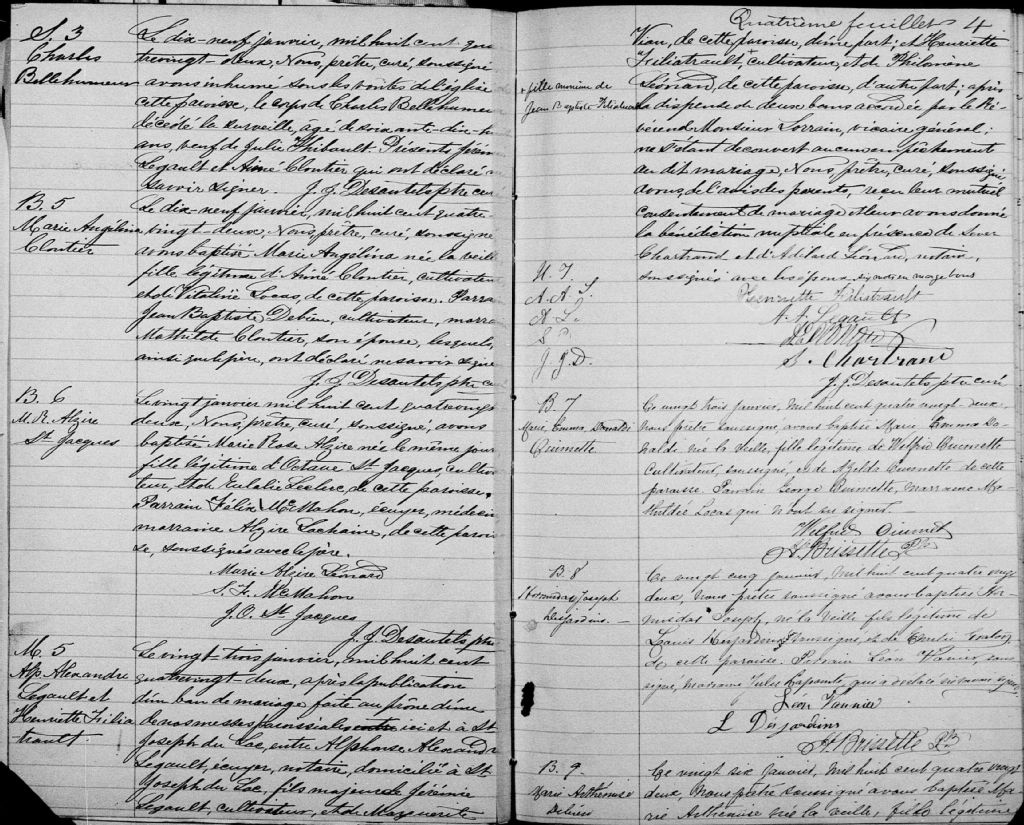 S. 3
Charles
Bellehumeur
Le dix-neuf janvier, mil huit cent qua-
trevingt-deux, Nous, prêtre, curé, soussigné
avons inhumé sous les voûtes de l'église
cette paroisse, le corps de Charles Bellehumeur
décédé la surveille, âgé de soixante-dix-
ans, veuf de Julie Thibault. Présents Jérémie
Legault et Aimé Cloutier qui ont déclaré ne
savoir signer. J. J. Desautels ptre curé
B. 5
Marie Angélina
Cloutier
Le dix-neuf janvier, mil huit cent quatre-
vingt-deux, Nous, prêtre, curé, soussigné
avons baptisé Marie Angélina née la veille
fille légitime d'Aimé Cloutier, cultivateur
et de Vitaline Lucas, de cette paroisse. Parrain
Jean Baptiste Debien, cultivateur, marraine
Mathilde Cloutier, son épouse, lesquels,
ainsi que le père, ont déclaré ne savoir signer
J. J. Desautels ptre curé
B. 6
M. R. Alzire
St. Jacques
Le vingt janvier mil huit cent quatrevingt
deux, Nous, prêtre, curé, soussigné, avons
baptisé Marie Rose Alzire née le même jour
fille légitime d'Octave St. Jacques, cultiva-
teur, et de Eulalie Leclerc, de cette paroisse.
Parrain Félix McMahon, écuyer, médecin
marraine Alzire Lachaine, de cette parois-
se, soussignés avec le père.
Marie Alzire Léonard
S. F. McMahon
J. O. St. Jacques
J. J. Desautels ptre
M. 5
Alp. Alexandre
Legault et
Henriette Filia
trault
Le vingt-trois janvier, mil huit cent
quatrevingt-deux, après la publication
d'un ban de mariage faite au prône d'une
de nos messes paroissiales ici et à St.
Joseph du Lac, entre Alphonse Alexandre
Legault, écuyer, notaire, domicilié à St
Joseph du Lac, fils majeur de Jérémie
Legault, cultivateur, et de Marguerite
Quatrième feuillet 4
Viau, de cette paroisse, d'une part; et Henriette
+ fille mineure de
Jean Baptiste Filiatrault
Filiatrault, cultivateur, et de Philomène
Léonard, de cette paroisse, d'autre part; après
la dispense de deux bans accordée par le Ré-
vérend Monsieur Lorrain, vicaire général;
ne s'étant découvert aucun empêchement
au dit mariage, Nous, prêtre, curé, soussigné,
avons, de l'avis des parents, reçu leur mutuel
consentement de mariage et leur avons donné
la bénédiction nuptiale en présence de Sever
Chartrand et d'Adélard Léonard, notaire,
soussignés avec les époux
H. F.
A. A. L.
A. L.
S. C.
J. J. D.
Henriette Filiatrault
A. A. Legault
S. Chartrand
J. J. Desautels ptre curé
B. 7
Marie Emma Donalda
Ouimette
Ce vingt trois janvier, mil huit cent quatre vingt-deux,
nous prêtre soussigné, avons baptisé Marie Emma Do-
nalda née la veille, fille légitime de Wilfrid Ouimette
cultivateur, soussigné, et de Azelda Ouimette de cette
paroisse. Parrain George Ouimette, marraine Ma-
thilde Lucas qui n'ont su signer.
Wilfrid Ouimet
A. Brissette Ptr
B. 8
Hormidas Joseph
Desjardins.
Ce vingt cinq janvier, mil huit cent quatre vingt
deux, nous prêtre soussigné avons baptisé Hor-
midas Joseph, né la veille fils légitime de
Louis Desjardins, soussigné et de
de cette paroisse. Parrain Léon Vanier, sous-
signé, marraine Julie Lapointe, qui a déclaré ne savoir signer
Léon Vannier
L Desjardins
A. Brissette Ptr
B. 9
Marie Arthémise
Debien
Ce vingt six janvier, mil huit cent quatre vingt
deux, nous prêtre soussigné avons baptisé Ma-
rie Arthémise née la veille, fille légitime